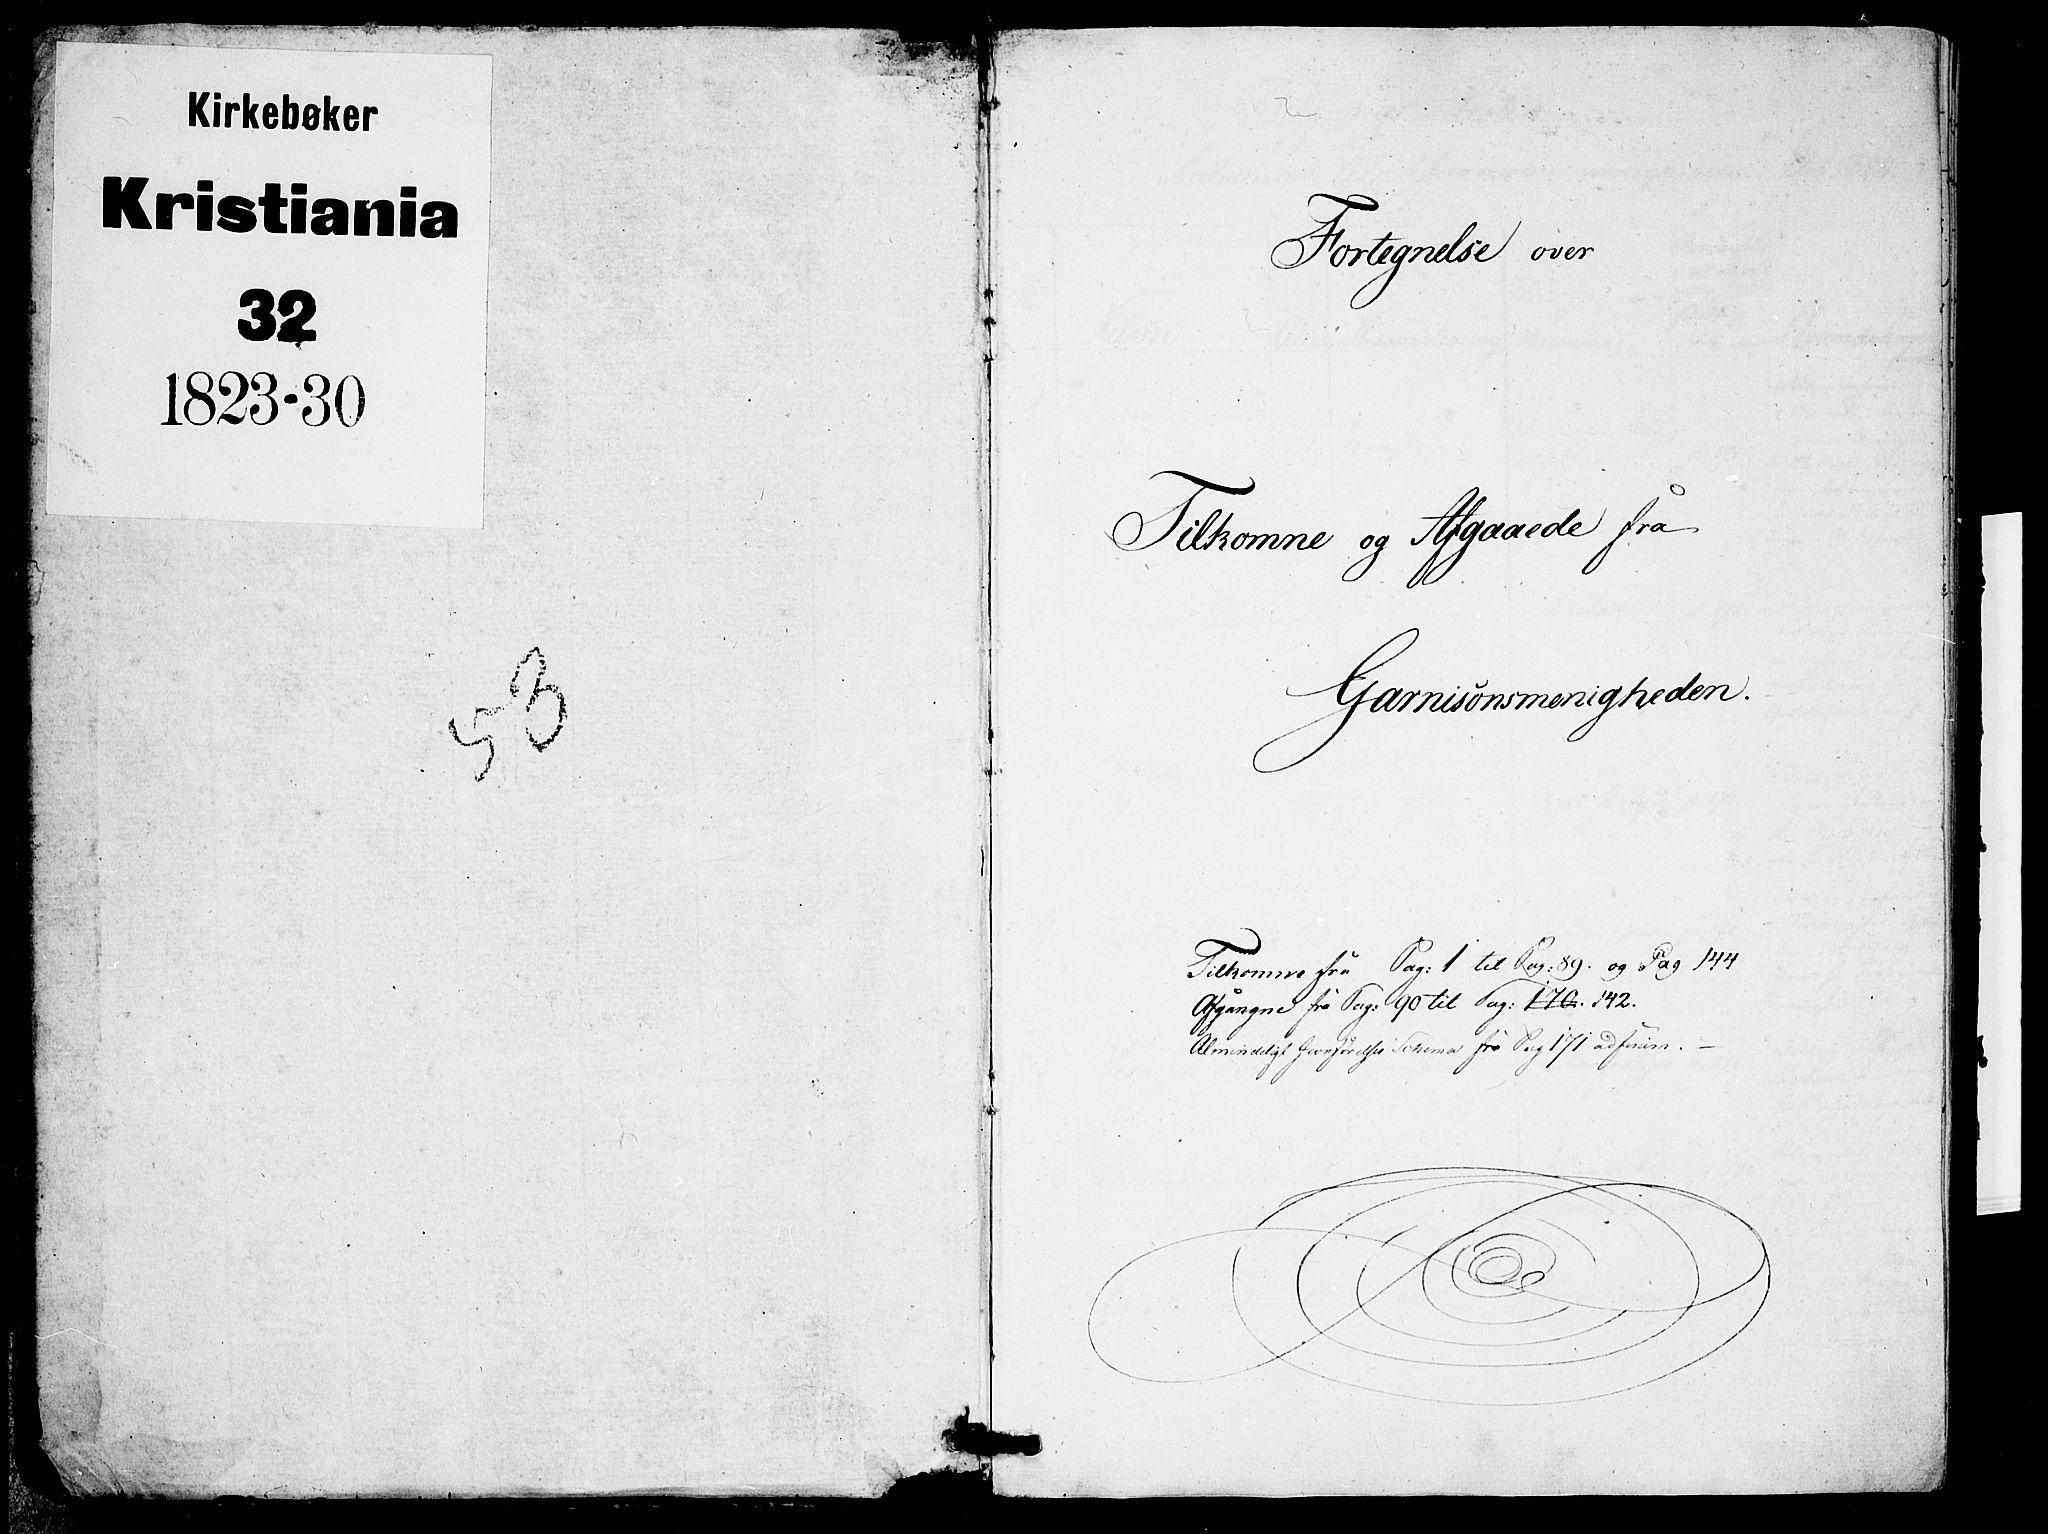 Kirkebøker
Kristiania
32
1823-30
53
Fortegnelse over
Tilkomne og Afgaaede fra
Garnisonsmenigheden.
Tilkomne fra Pag: 1 til Pag: 89. og Pag 144
Afgangne fra Pag: 90 til Pag: 170. 142.
Almindeligt Jevnførelses Schema fra Pag 171 ad finem. –